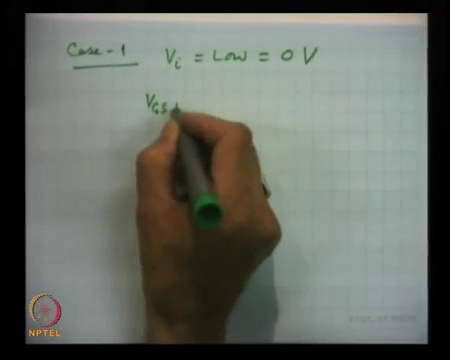 Case-1 Vi = Low = 0 V
VGS
NPTEL